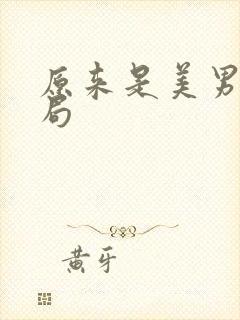 原来是美男
局
黄牙